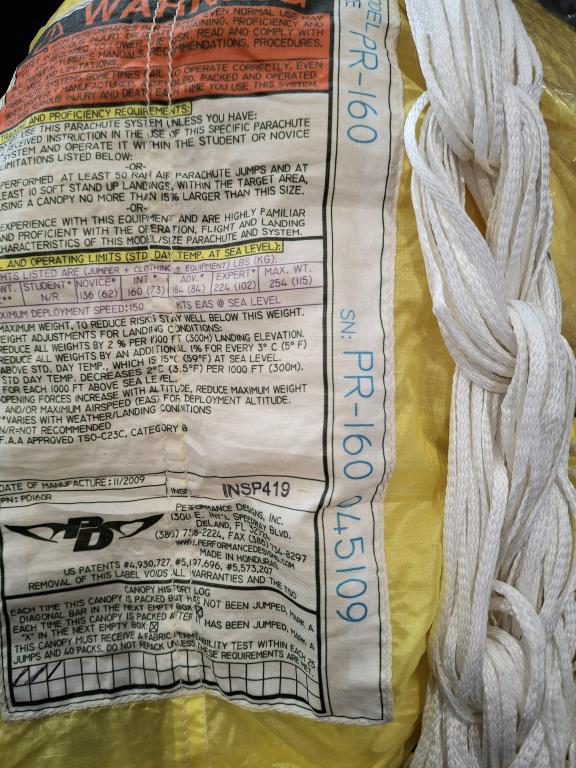 WARNING
EVEN NORMAL USE MAY
TRAINING, PROFICIENCY AND
READ AND COMPLY WITH
MANUFACTURER'S MANUALS, RECOMMENDATIONS, PROCEDURES,
LIMITATIONS.
SYSTEMS SOMETIMES FAIL TO OPERATE CORRECTLY, EVEN
PACKED AND OPERATED.
INJURY AND DEATH EACH TIME YOU USE THIS SYSTEM.
AND PROFICIENCY REQUIREMENTS:
USE THIS PARACHUTE SYSTEM UNLESS YOU HAVE:
RECEIVED INSTRUCTION IN THE USE OF THIS SPECIFIC PARACHUTE
SYSTEM AND OPERATE IT WITHIN THE STUDENT OR NOVICE
LIMITATIONS LISTED BELOW:
-OR-
PERFORMED AT LEAST 50 RAM AIR PARACHUTE JUMPS AND AT
LEAST 10 SOFT STAND UP LANDINGS, WITHIN THE TARGET AREA,
USING A CANOPY NO MORE THAN 15% LARGER THAN THIS SIZE.
-OR-
EXPERIENCE WITH THIS EQUIPMENT AND ARE HIGHLY FAMILIAR
AND PROFICIENT WITH THE OPERATION, FLIGHT AND LANDING
CHARACTERISTICS OF THIS MODEL/SIZE PARACHUTE AND SYSTEM.
AND OPERATING LIMITS (STD DAY TEMP. AT SEA LEVEL):
HTS LISTED ARE (JUMPER + CLOTHING + EQUIPMENT) LBS (KG).
WT. STUDENT* NOVICE* INT.* ADV.* EXPERT* MAX. WT.
** N/R 136 (62) 160 (73) 184 (84) 224 (102) 254 (115)
MAXIMUM DEPLOYMENT SPEED: 150 KTS EAS @ SEA LEVEL
MAXIMUM WEIGHT, TO REDUCE RISKS STAY WELL BELOW THIS WEIGHT.
WEIGHT ADJUSTMENTS FOR LANDING CONDITIONS:
REDUCE ALL WEIGHTS BY 2 % PER 1000 FT (300M) LANDING ELEVATION.
REDUCE ALL WEIGHTS BY AN ADDITIONAL 1% FOR EVERY 3° C (5° F)
ABOVE STD. DAY TEMP., WHICH IS 15°C (59°F) AT SEA LEVEL.
STD DAY TEMP. DECREASES 2°C (3.5°F) PER 1000 FT (300M).
FOR EACH 1000 FT ABOVE SEA LEVEL.
OPENING FORCES INCREASE WITH ALTITUDE, REDUCE MAXIMUM WEIGHT
AND/OR MAXIMUM AIRSPEED (EAS) FOR DEPLOYMENT ALTITUDE.
*VARIES WITH WEATHER/LANDING CONDITIONS
N/R=NOT RECOMMENDED
F.A.A APPROVED TSO-C23C, CATEGORY B
DATE OF MANUFACTURE: 11/2009
PN: PD160R
INSP
INSP419
PD
PERFORMANCE DESIGNS, INC.
1300 E. INT'L SPEEDWAY BLVD.
DELAND, FL 32724
(386) 738-2224, FAX (386) 734-8297
WWW.PERFORMANCEDESIGNS.COM
MADE IN HONDURAS
US PATENTS #4,930,727, #5,197,696, #5,573,207
REMOVAL OF THIS LABEL VOIDS ALL WARRANTIES AND THE TSO
CANOPY HISTORY LOG
EACH TIME THIS CANOPY IS PACKED BUT HAS NOT BEEN JUMPED, MARK A
DIAGONAL BAR IN THE NEXT EMPTY BOX
EACH TIME THIS CANOPY IS PACKED AFTER IT HAS BEEN JUMPED, MARK A
"X" IN THE NEXT EMPTY BOX:
THIS CANOPY MUST RECEIVE A FABRIC PERMEABILITY TEST WITHIN EACH 25
JUMPS AND 40 PACKS. DO NOT REPACK UNLESS THESE REQUIREMENTS ARE MET.
MODEL PR-160
SN: PR-160 045109